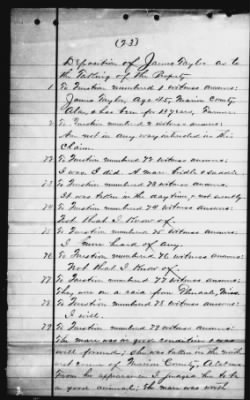 (23)
Deposition of James Taylor as to
the Taking of the Property
1. To Question numbered 1 witness answers:
James Taylor, Age 45, Marion County
Ala, & has been for 13 years, Farmer
2. To Question numbered 2 witness answers:
Am not in any way interested in this
Claim.
72. To Question numbered 72 witness answers:
I was I did. A mare bridle & saddle
73. To Question numbered 73 witness answers:
It was taken in the daytime, & not secretly
74. To Question numbered 74 witness answers:
Not that I know of.
75. To Question numbered 75 witness answers:
I never heard of any.
76. To Question numbered 76 witness answers:
Not that I know of.
77. To Question numbered 77 witness answers:
They were on a raid from Miss.
78. To Question numbered 78 witness answers:
I will.
79. To Question numbered 79 witness answers:
The mare was in good condition & was
well formed; She was taken in the
corner of Marion County, Alabama.
From her appearance I judged her to be
a good animal; The mare was worth